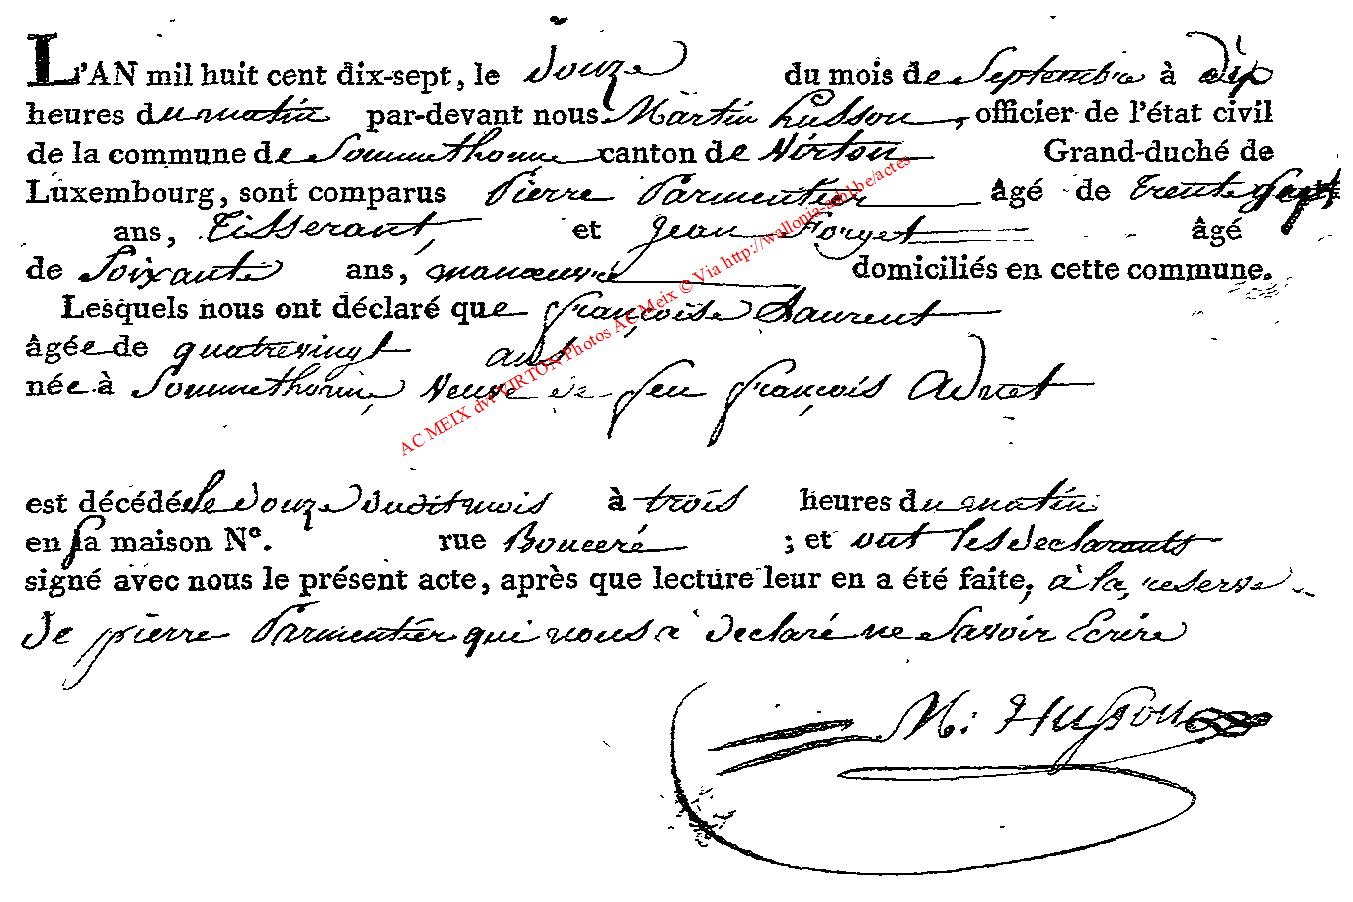 L'AN mil huit cent dix-sept, le douze du mois de Septembre à dix
heures du matin par-devant nous Martin husson, officier de l'état civil
de la commune de Sommethonne canton de Virton Grand-duché de
Luxembourg, sont comparus Pierre Parmentier âgé de trente sept
ans, Tisserant, et Jean Forget âgé
de Soixante ans, manœuvre domiciliés en cette commune.
Lesquels nous ont déclaré que françoise Laurent
âgée de quatrevingt ans
née à Sommethonne, Veuve de feu françois Adnet
est décédée le douze duditmois à trois heures du matin
en sa maison N°. rue Bouceré ; et ont les declarants
signé avec nous le présent acte, après que lecture leur en a été faite, à la reserve
de pierre Parmentier qui nous a declaré ne Savoir Ecrire
M: Husson
AC MEIX dvt VIRTON Photos AC Meix © Via http://wallonia-asbl.be/actes